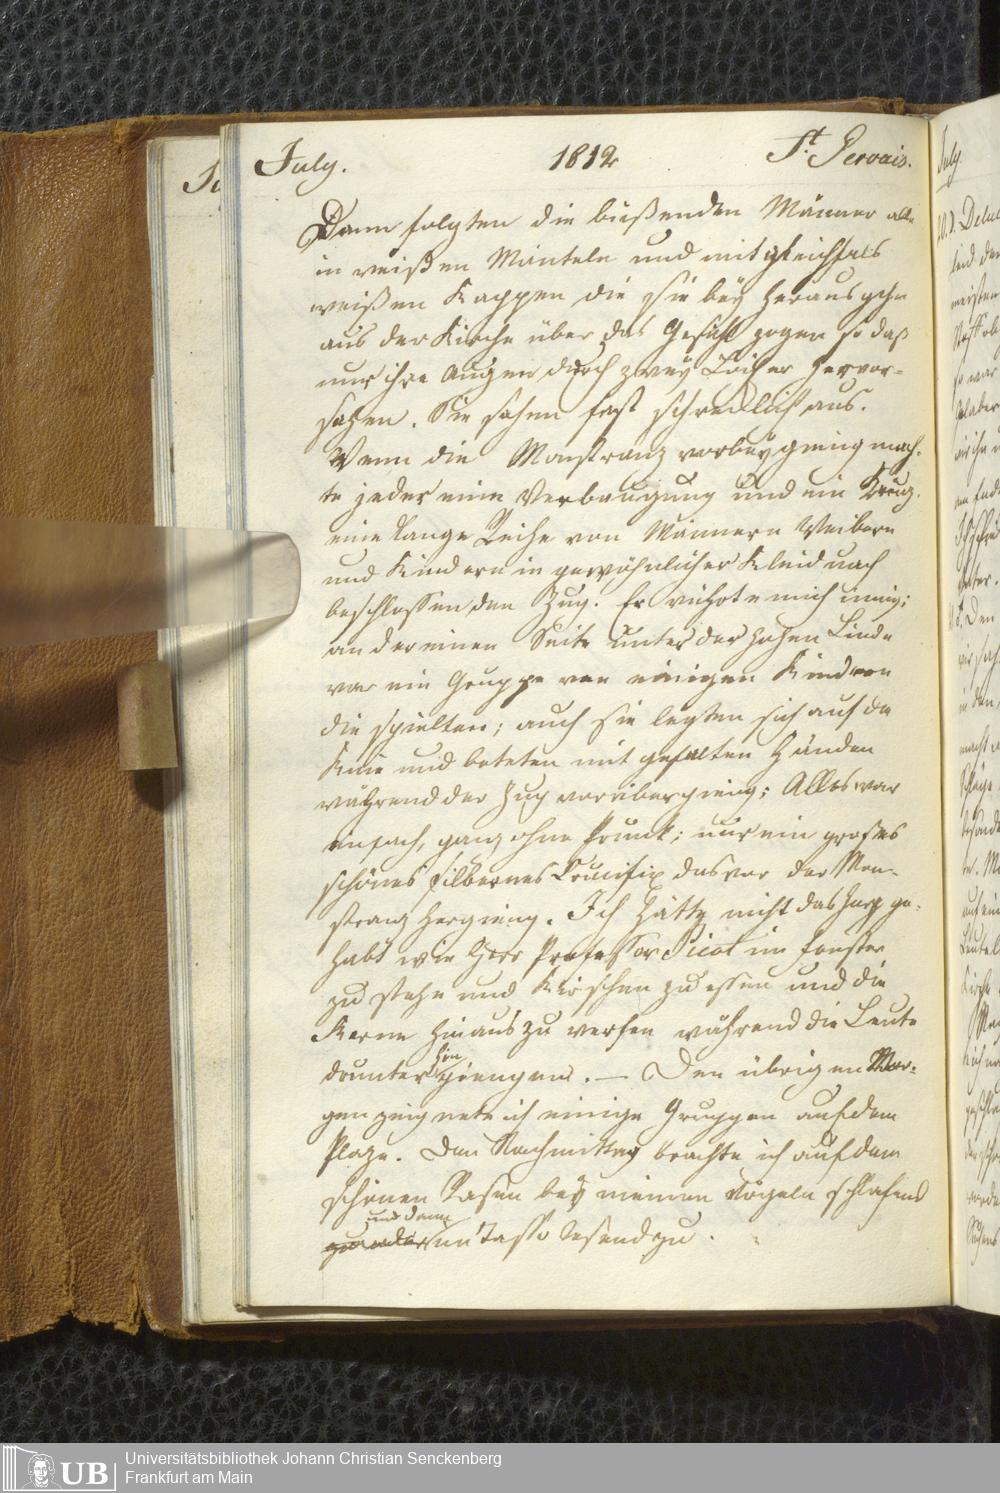 July. 1812 St. Gervais.
Dann folgten die büßenden Männer alle
in weißen Mänteln und mit gleichfals
weißen Kappen die sie bey herausgehn
aus der Kirche über das Gesicht zogen so daß
nur ihre Augen durch zwey Löcher hervor-
sahen. Sie sahen fast schrecklich aus.
Wenn die Monstranz vorbeyginng mach-
te jeder eine Verbäugung und ein Kreuz.
eine lange Reihe von Männern Weibern
und Kindern in gewöhnlicher Kleid nach
beschlossen den Zug. Er rührte mich innig;
an der einen Seite unter der hohen Linde
war ein Gruppe von einigen Kindern
die spielten; auch sie legten sich auf die
Knie und beteten mit gefalten Händen
während der Zug vorüberging; Alles war
einfach, ganz ohne Prunk; nur ein großes
schönes silbernes Crucifix das vor der Mon-
stranz herging. Ich hätte nicht das Herz ge-
habt wie Herr Professor Picot im Fenster
zu stehn und Kirschen zu essen und die
Kerne hinaus zu werfen während die Leute
drunter hin giengen. — Den übrigen Mor-
gen zeignete ich einige Gruppen auf dem
Plaze. Den Nachmittag brachte ich auf dem
schönen Rasen bey meinen Vögeln schlafend
und dann
im Tasso lesend zu.
July
Universitätsbibliothek Johann Christian Senckenberg
Frankfurt am Main
UB